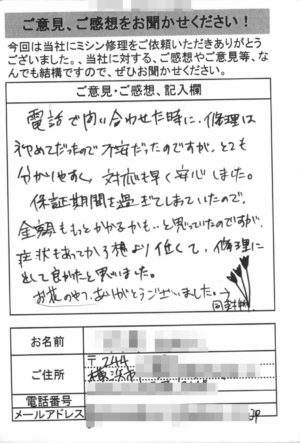 ご意見、ご感想をお聞かせください！
今回は当社にミシン修理をご依頼いただきありがとう
ございました。、当社に対する、ご感想やご意見等、な
んでも結構ですので、ぜひお聞かせください。
ご意見・ご感想、記入欄
電話で問い合わせた時に、修理は
初めてだったので不安だったのですが、とても
分かりやすく、対応も早く安心しました。
保証期間を過ぎてしまっていたので、
金額ももっとかかるかも…と思っていたのですが、
症状もあってか予想より低くて、修理に
出して良かったと思いました。
お花のやつ、ありがとうございました。→
お名前
ご住所
〒244
横浜市
電話番号
メールアドレス